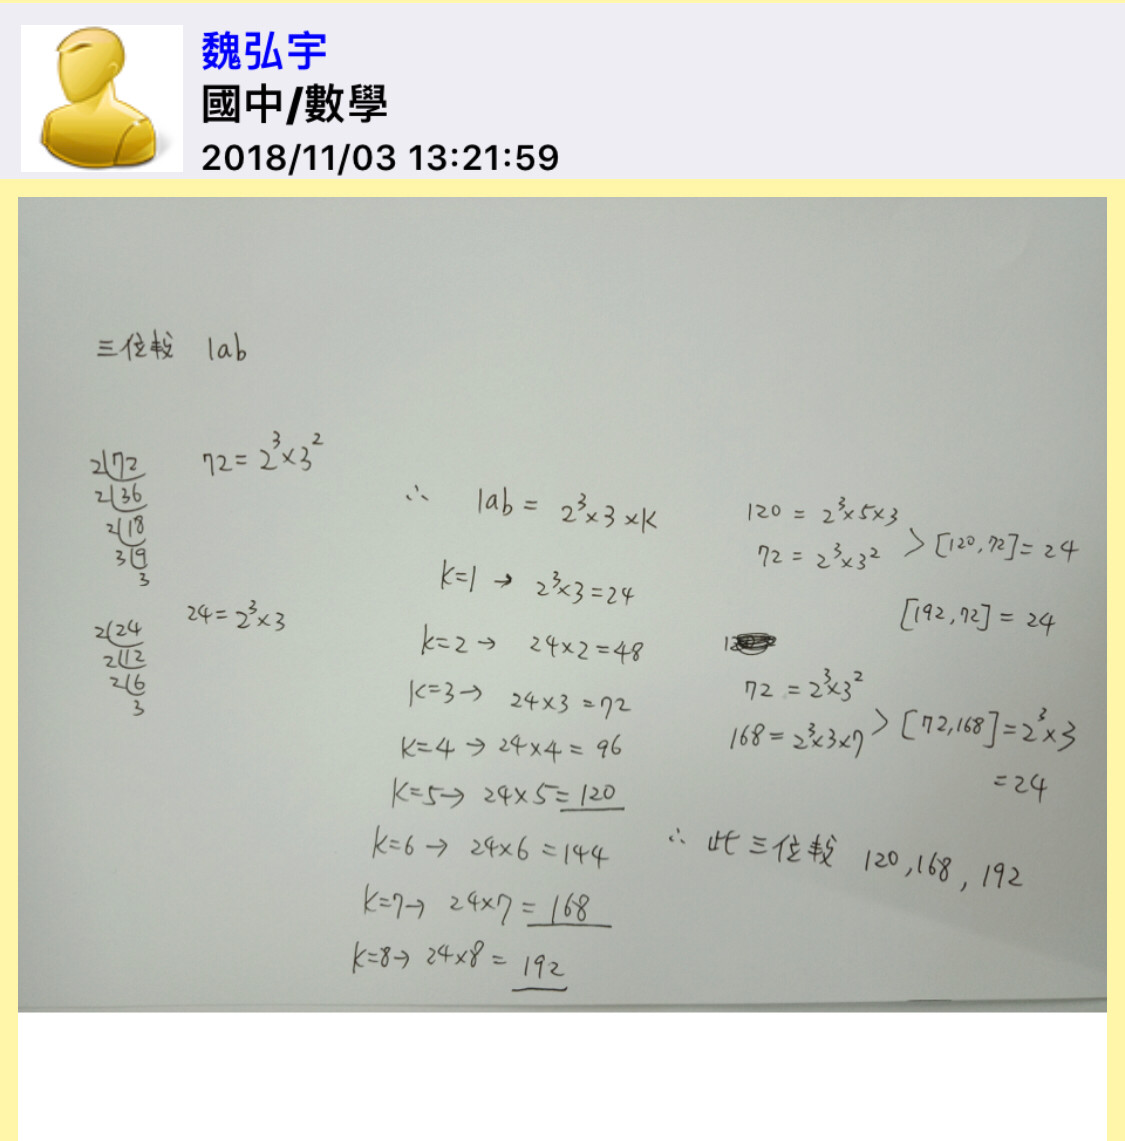 魏弘宇
國中/數學
2018/11/03 13:21:59
三位數 1ab
2 72
2 36
2 18
3 9
3
72 = 2³×3²
2 24
2 12
2 6
3
24 = 2³×3
∴ 1ab = 2³×3×K
K=1 → 2³×3=24
K=2 → 24×2=48
K=3 → 24×3=72
K=4 → 24×4=96
K=5→ 24×5=120
K=6 → 24×6=144
K=7→ 24×7=168
K=8→ 24×8=192
120 = 2³×5×3
72 = 2³×3²
> [120,72]=24
[192,72] = 24
72 = 2³×3²
168=2³×3×7
> [72,168]=2³×3
=24
∴ 此三位數 120,168,192